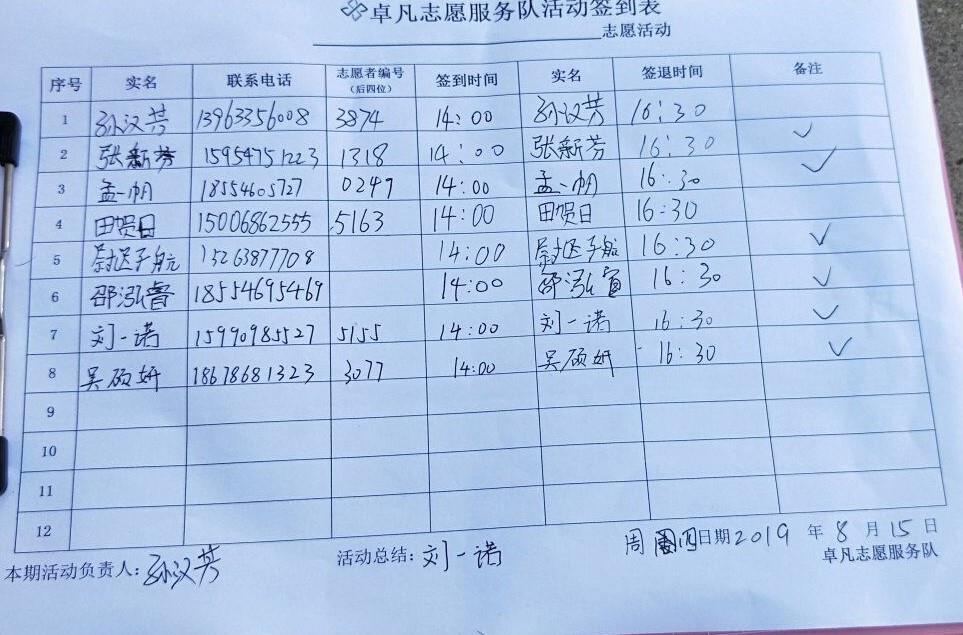 卓凡志愿服务队活动签到表
志愿活动
序号 实名 联系电话 志愿者编号（后四位） 签到时间 实名 签退时间 备注
1 孙汉芳 13963356008 3874 14:00 孙汉芳 16:30
2 张新芳 15954751223 1318 14:00 张新芳 16:30 ✓
3 孟一帆 18554605727 0247 14:00 孟一帆 16:30 ✓
4 田贺日 15006862555 5163 14:00 田贺日 16:30
5 尉迟子航 13263877708 14:00 尉迟子航 16:30 ✓
6 邵泓睿 18554695469 14:00 邵泓睿 16:30 ✓
7 刘一诺 15990985527 5155 14:00 刘一诺 16:30 ✓
8 吴硕妍 18678681323 3077 14:00 吴硕妍 16:30 ✓
9
10
11
12
本期活动负责人：孙汉芳 活动总结：刘一诺 周四日期2019年8月15日
卓凡志愿服务队